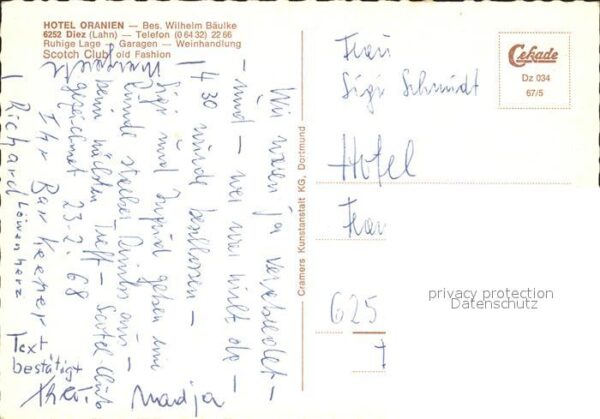 HOTEL ORANIEN — Bes. Wilhelm Bäulke
6252 Diez (Lahn) — Telefon (0 64 32) 22 66
Ruhige Lage — Garagen — Weinhandlung
Scotch Club old Fashion
Wir waren ja verabredet —
— und — wer war nicht da —
4 30 wurde beschlossen —
Sigi und Ingrid geben eine
Runde
beim nächsten Treff — Scotch Club
gezeichnet 23.2.68
Ihr Bar Keeper
Richard Löwenherz
Text
bestätigt
Nadja
Cramers Kunstanstalt KG, Dortmund
Cekade
Dz 034
67/5
Frau
Sigi Schmidt
Hotel
625
privacy protection
Datenschutz